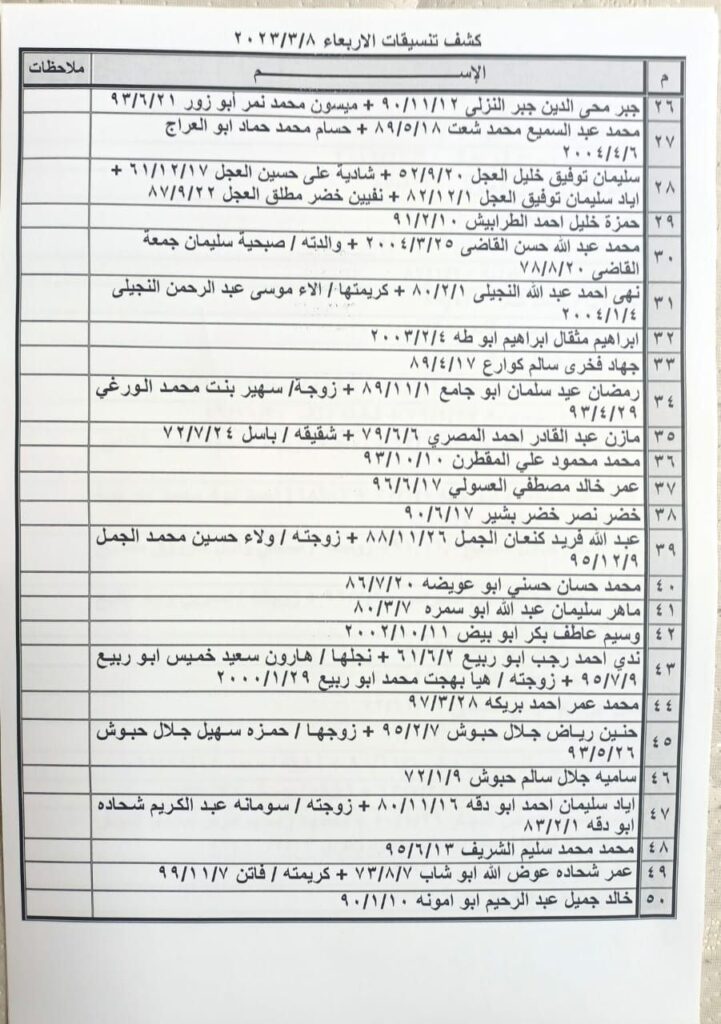 كشف تنسيقات الاربعاء ٢٠٢٣/٣/٨
م الإســـــــم ملاحظات
٢٦ جبر محى الدين جبر النزلى ٩٠/١١/١٢ + ميسون محمد نمر أبو زور ٩٣/٦/٢١
٢٧ محمد عبد السميع محمد شعت ٨٩/٥/١٨ + حسام محمد حماد ابو العراج
٢٠٠٤/٤/٦
٢٨ سليمان توفيق خليل العجل ٥٢/٩/٢٠ + شادية على حسين العجل ٦١/١٢/١٧ +
اياد سليمان توفيق العجل ٨٢/١٢/١ + نفيين خضر مطلق العجل ٨٧/٩/٢٢
٢٩ حمزة خليل احمد الطرابيش ٩١/٢/١٠
٣٠ محمد عبد الله حسن القاضى ٢٠٠٤/٣/٢٥ + والدته / صبحية سليمان جمعة
القاضى ٧٨/٨/٢٠
٣١ نهى احمد عبد الله النجيلى ٨٠/٢/١ + كريمتها / الاء موسى عبد الرحمن النجيلى
٢٠٠٤/١/٤
٣٢ ابراهيم مثقال ابراهيم ابو طه ٢٠٠٣/٢/٤
٣٣ جهاد فخرى سالم كوارع ٨٩/٤/١٧
٣٤ رمضان عيد سلمان ابو جامع ٨٩/١١/١ + زوجة/ سهير بنت محمد الورغي
٩٣/٤/٢٩
٣٥ مازن عبد القادر احمد المصري ٧٩/٦/٦ + شقيقه / باسل ٧٢/٧/٢٤
٣٦ محمد محمود علي المقطرن ٩٣/١٠/١٠
٣٧ عمر خالد مصطفي العسولي ٩٦/٦/١٧
٣٨ خضر نصر خضر بشير ٩٠/٦/١٧
٣٩ عبد الله فريد كنعان الجمل ٨٨/١١/٢٦ + زوجته / ولاء حسين محمد الجمل
٩٥/١٢/٩
٤٠ محمد حسان حسني ابو عويضه ٨٦/٧/٢٠
٤١ ماهر سليمان عبد الله ابو سمره ٨٠/٣/٧
٤٢ وسيم عاطف بكر ابو بيض ٢٠٠٢/١٠/١١
٤٣ ندي احمد رجب ابو ربيع ٦١/٦/٢ + نجلها / هارون سعيد خميس ابو ربيع
٩٥/٧/٩ + زوجته / هيا بهجت محمد ابو ربيع ٢٠٠٠/١/٢٩
٤٤ محمد عمر احمد بريكه ٩٧/٣/٢٨
٤٥ حنين رياض جلال حبوش ٩٥/٢/٧ + زوجها / حمزه سهيل جلال حبوش
٩٣/٥/٢٦
٤٦ ساميه جلال سالم حبوش ٧٢/١/٩
٤٧ اياد سليمان احمد ابو دقه ٨٠/١١/١٦ + زوجته / سومانه عبد الكريم شحاده
ابو دقه ٨٣/٢/١
٤٨ محمد محمد سليم الشريف ٩٥/٦/١٣
٤٩ عمر شحاده عوض الله ابو شاب ٧٣/٨/٧ + كريمته / فاتن ٩٩/١١/٧
٥٠ خالد جميل عبد الرحيم ابو امونه ٩٠/١/١٠